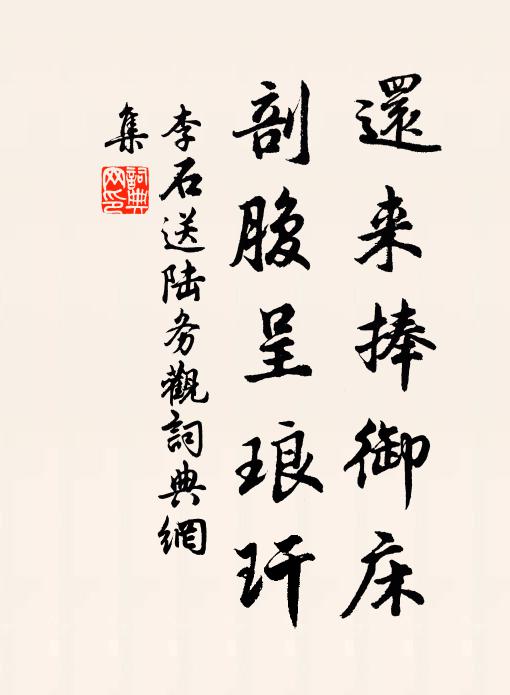 還来捧御床
剖腹呈琅玕
李石送陆务觀詞典網
集
詞典
网印